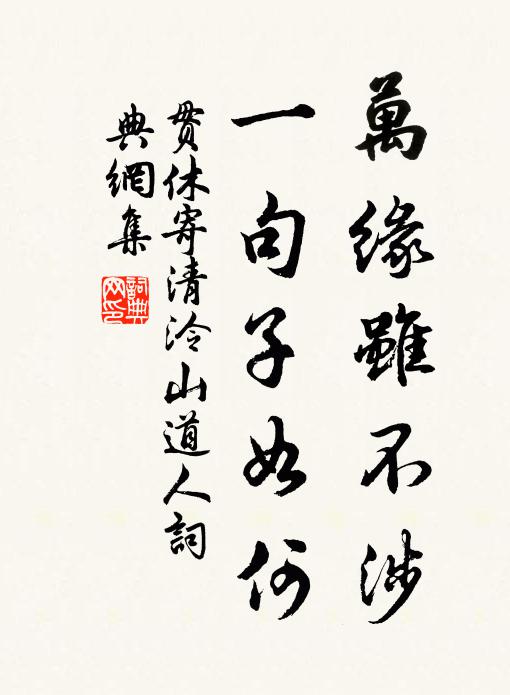 萬緣雖不涉
一句子如何
貫休寄清泠山道人詞
典網集
詞典
网印